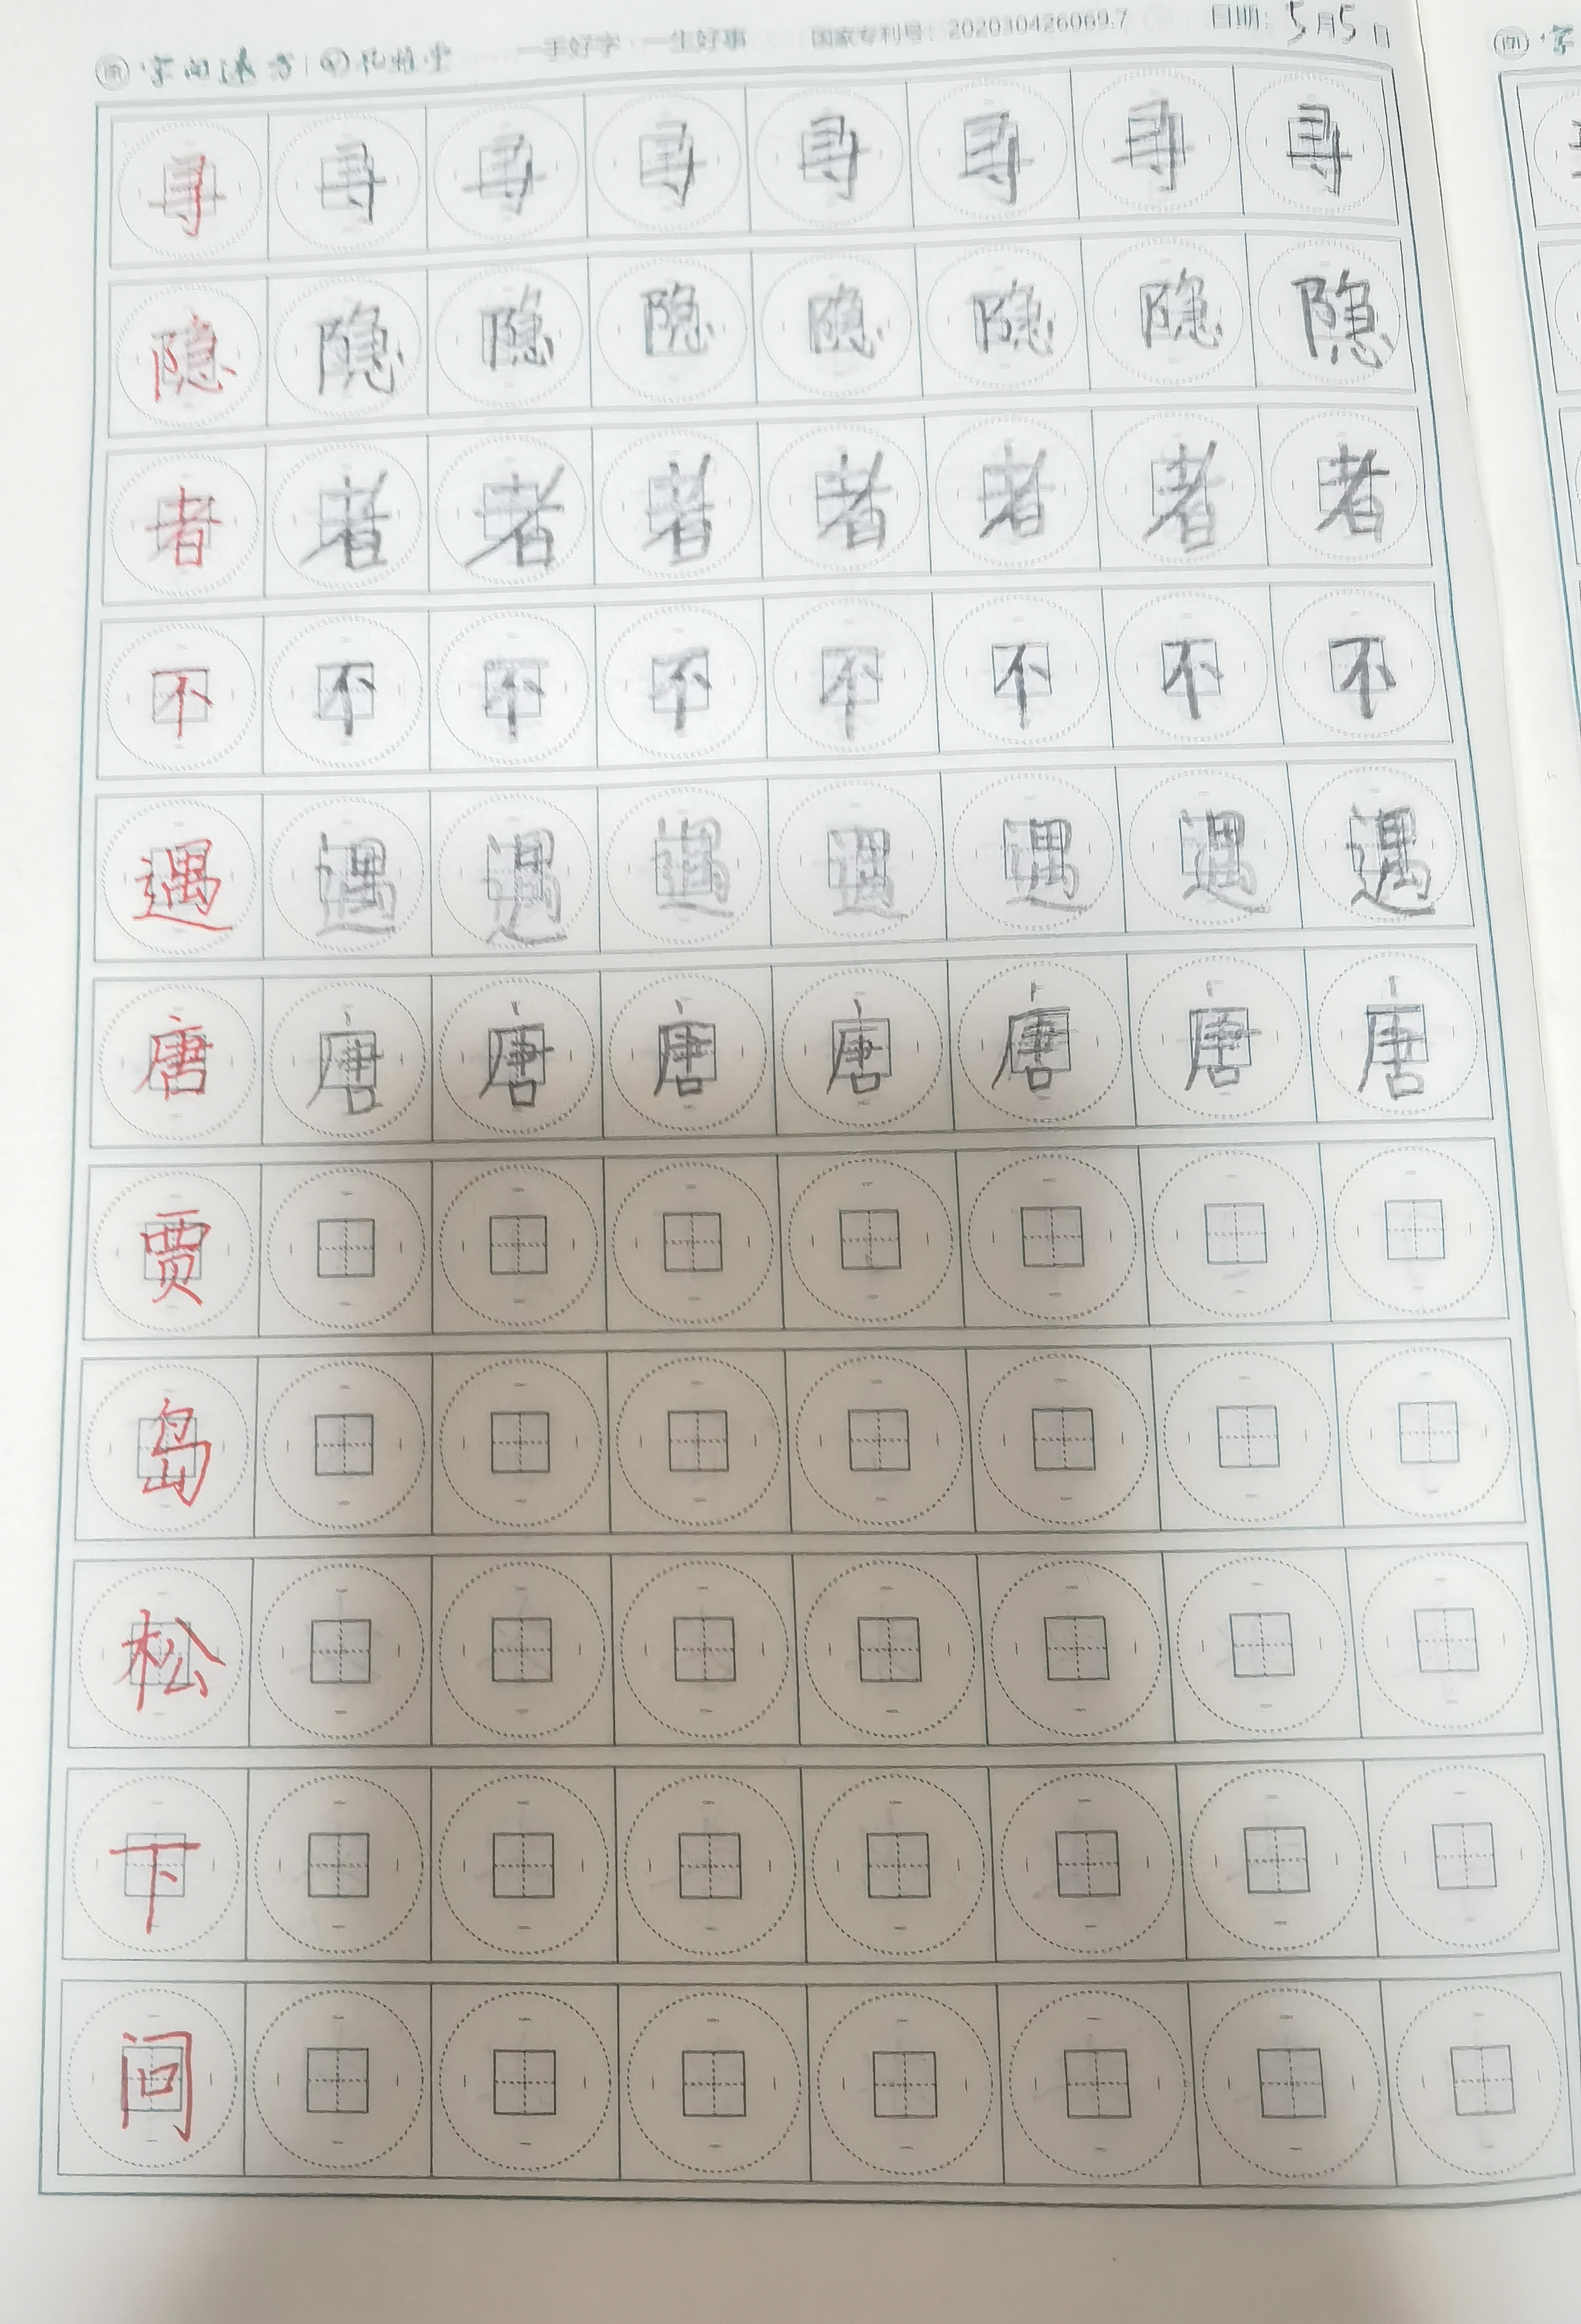 一手好字 一生好事 国家专利号:202030426069.7 日期:5月5日
寻 寻 寻 寻 寻 寻 寻 寻
隐 隐 隐 隐 隐 隐 隐 隐
者 者 者 者 者 者 者 者
不 不 不 不 不 不 不 不
遇 遇 遇 遇 遇 遇 遇 遇
唐 唐 唐 唐 唐 唐 唐 唐
贾
岛
松
下
问